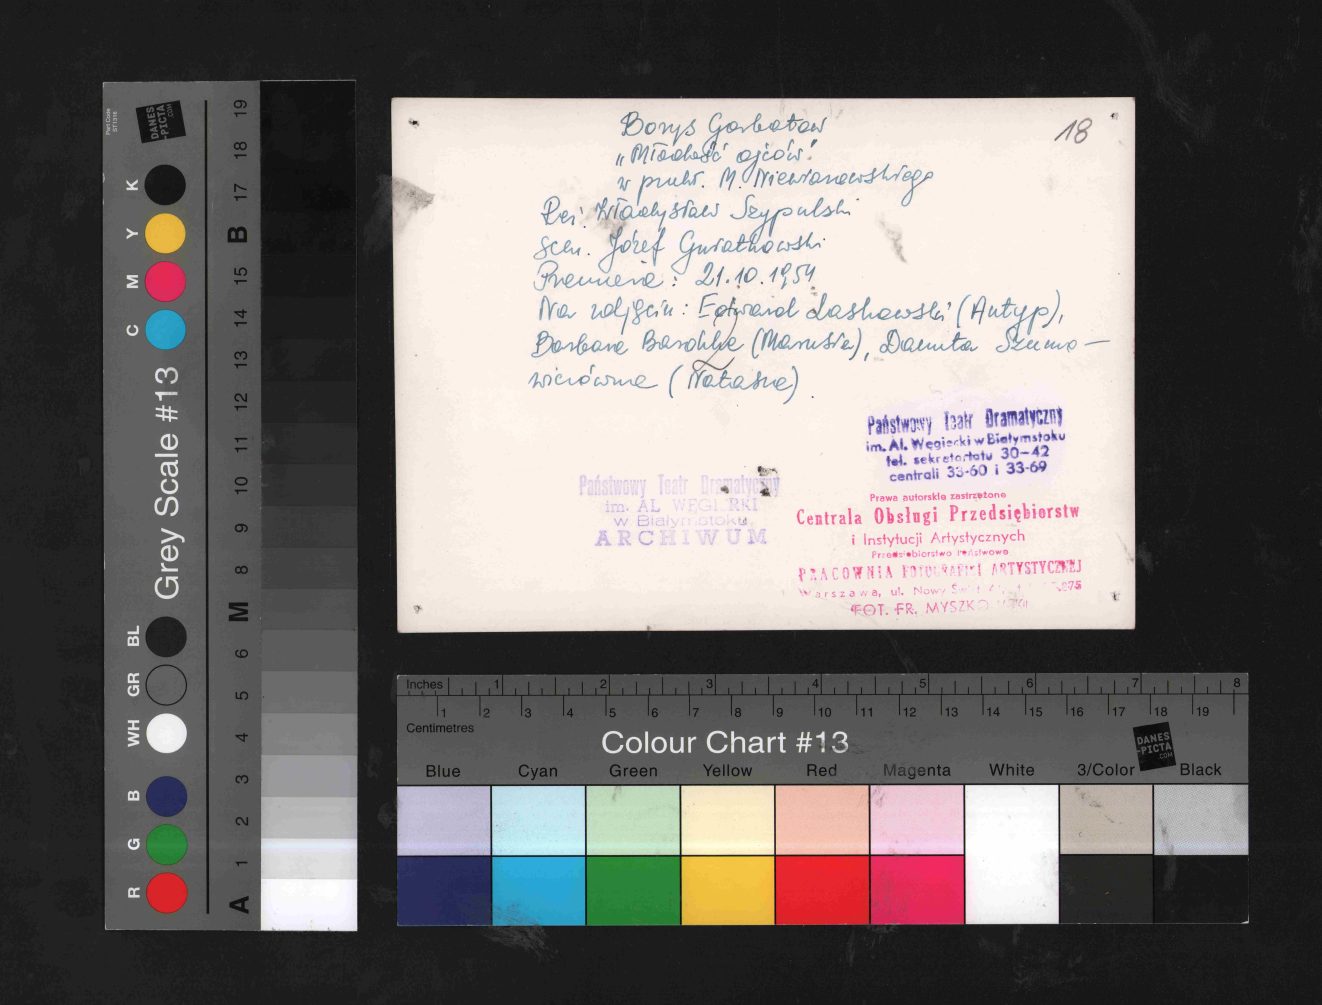 Borys Gorbatow
18
„Młodość ojców"
w przekł. M. Niewiarowskiego
Reż. Władysław Szypulski
Scen. Józef Gwiatkowski
Premiera: 21.10.1954
Na zdjęciu: Edward Laskowski (Antyp),
Barbara Barchke (Marusia), Danuta Szumo-
wiczówna (Natasza).
Państwowy Teatr Dramatyczny
im. Al. Węgierki w Białymstoku
tel. sekretariatu 30-42
centrali 33-60 i 33-69
Państwowy Teatr Dramatyczny
im. AL WĘGIERKI
w Białymstoku
ARCHIWUM
Prawa autorskie zastrzeżone
Centrala Obsługi Przedsiębiorstw
i Instytucji Artystycznych
Przedsiębiorstwo Państwowe
PRACOWNIA FOTOGRAFIKI ARTYSTYCZNEJ
Warszawa, ul. Nowy Świat
FOT. FR. MYSZKOWSKI
Part Code
ST1316
DANES
-PICTA
.COM
Grey Scale #13
R G B WH GR BL C M Y K
A 1 2 3 4 5 6 M 8 9 10 11 12 13 14 15 B 17 18 19
Inches 1 2 3 4 5 6 7 8
1 2 3 4 5 6 7 8 9 10 11 12 13 14 15 16 17 18 19
Centimetres
Colour Chart #13
DANES
-PICTA
.COM
Blue Cyan Green Yellow Red Magenta White 3/Color Black